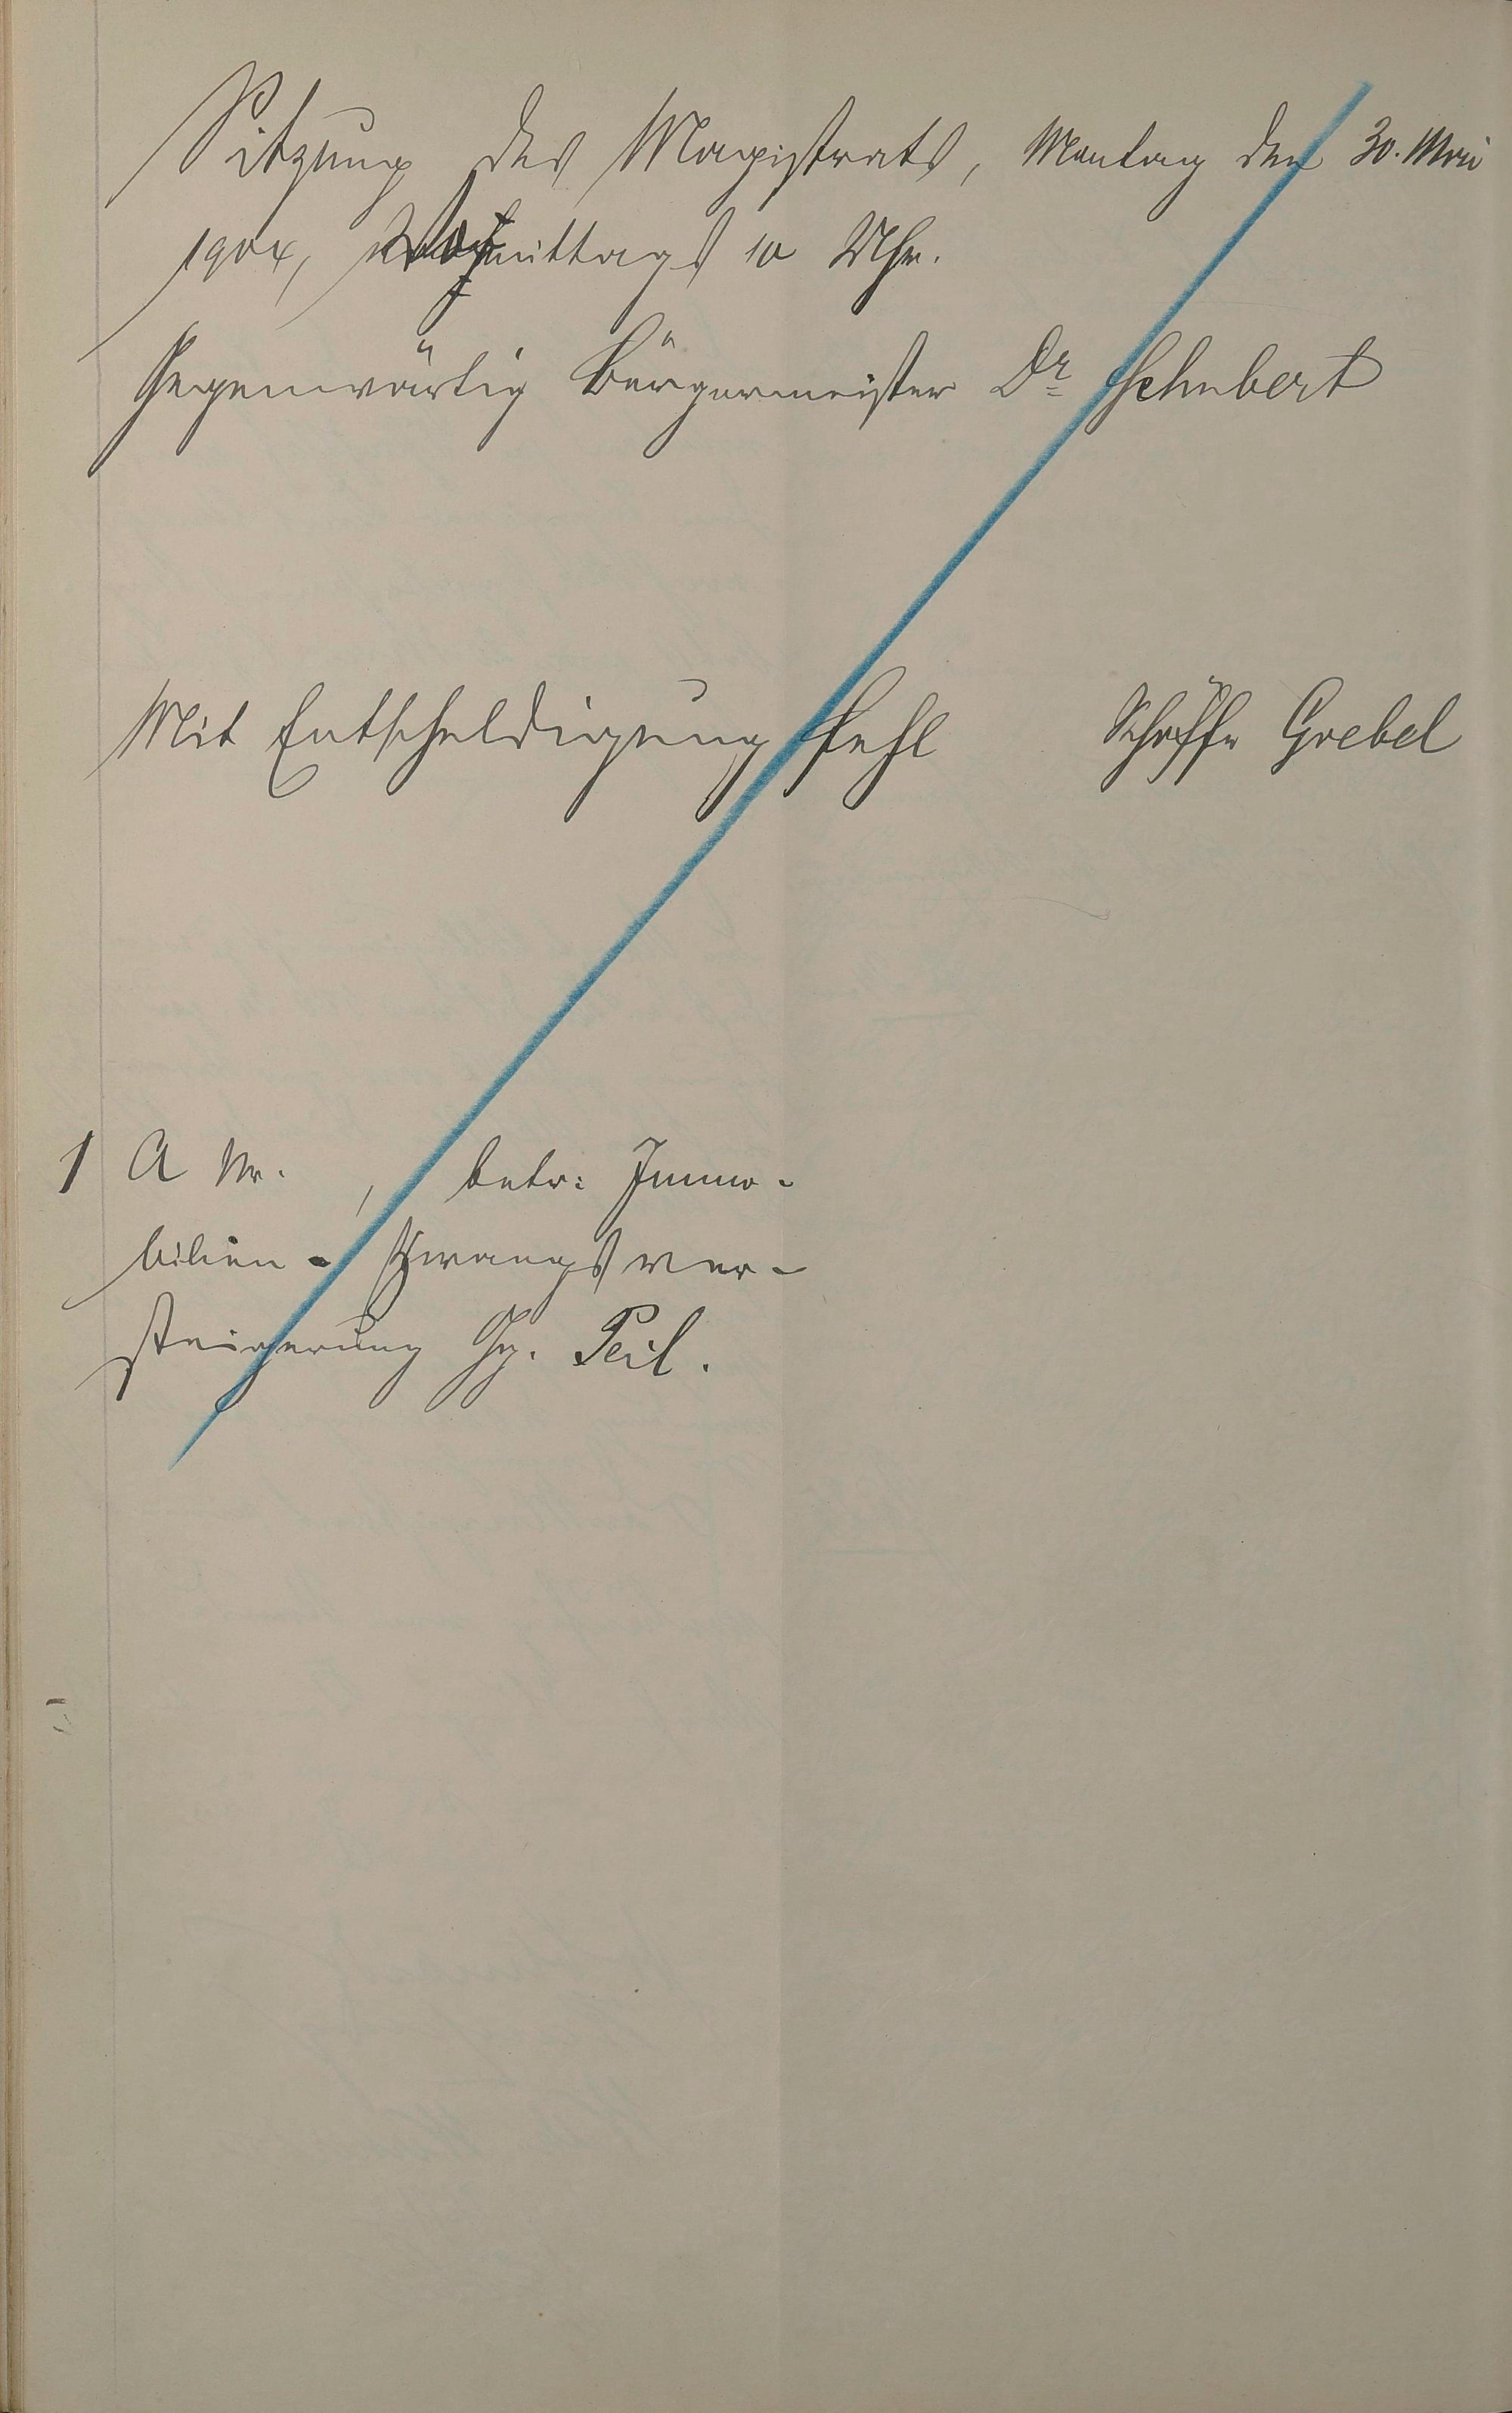 Sitzung des Magistrats, Montag den 30. Mai
1904, Vormittags 10 Uhr.
Gegenwärtig Bürgermeister Dr Schubert
Mit Entschuldigung fehl Schöffe Grebel
1 A Nr. , betr: Immo-
bilien-Zwangsver-
steigerung Hg. Peil.